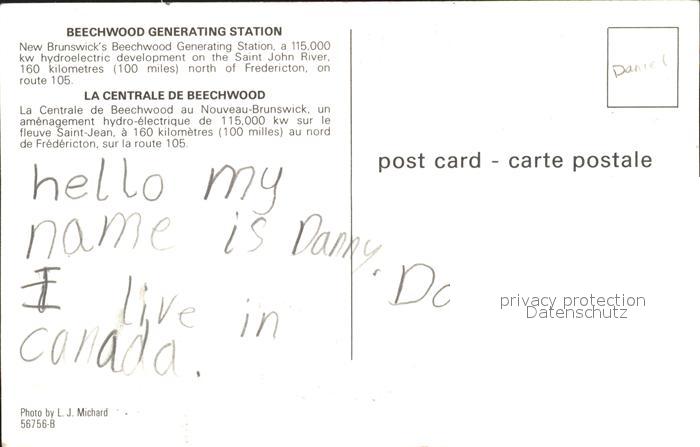 BEECHWOOD GENERATING STATION
New Brunswick's Beechwood Generating Station, a 115,000
kw hydroelectric development on the Saint John River,
160 kilometres (100 miles) north of Fredericton, on
route 105.
LA CENTRALE DE BEECHWOOD
La Centrale de Beechwood au Nouveau-Brunswick, un
aménagement hydro-électrique de 115,000 kw sur le
fleuve Saint-Jean, à 160 kilomètres (100 milles) au nord
de Frédéricton, sur la route 105.
hello my
name is Danny.
I live in
canada.
Photo by L. J. Michard
56756-B
Daniel
post card - carte postale
Do
privacy protection
Datenschutz